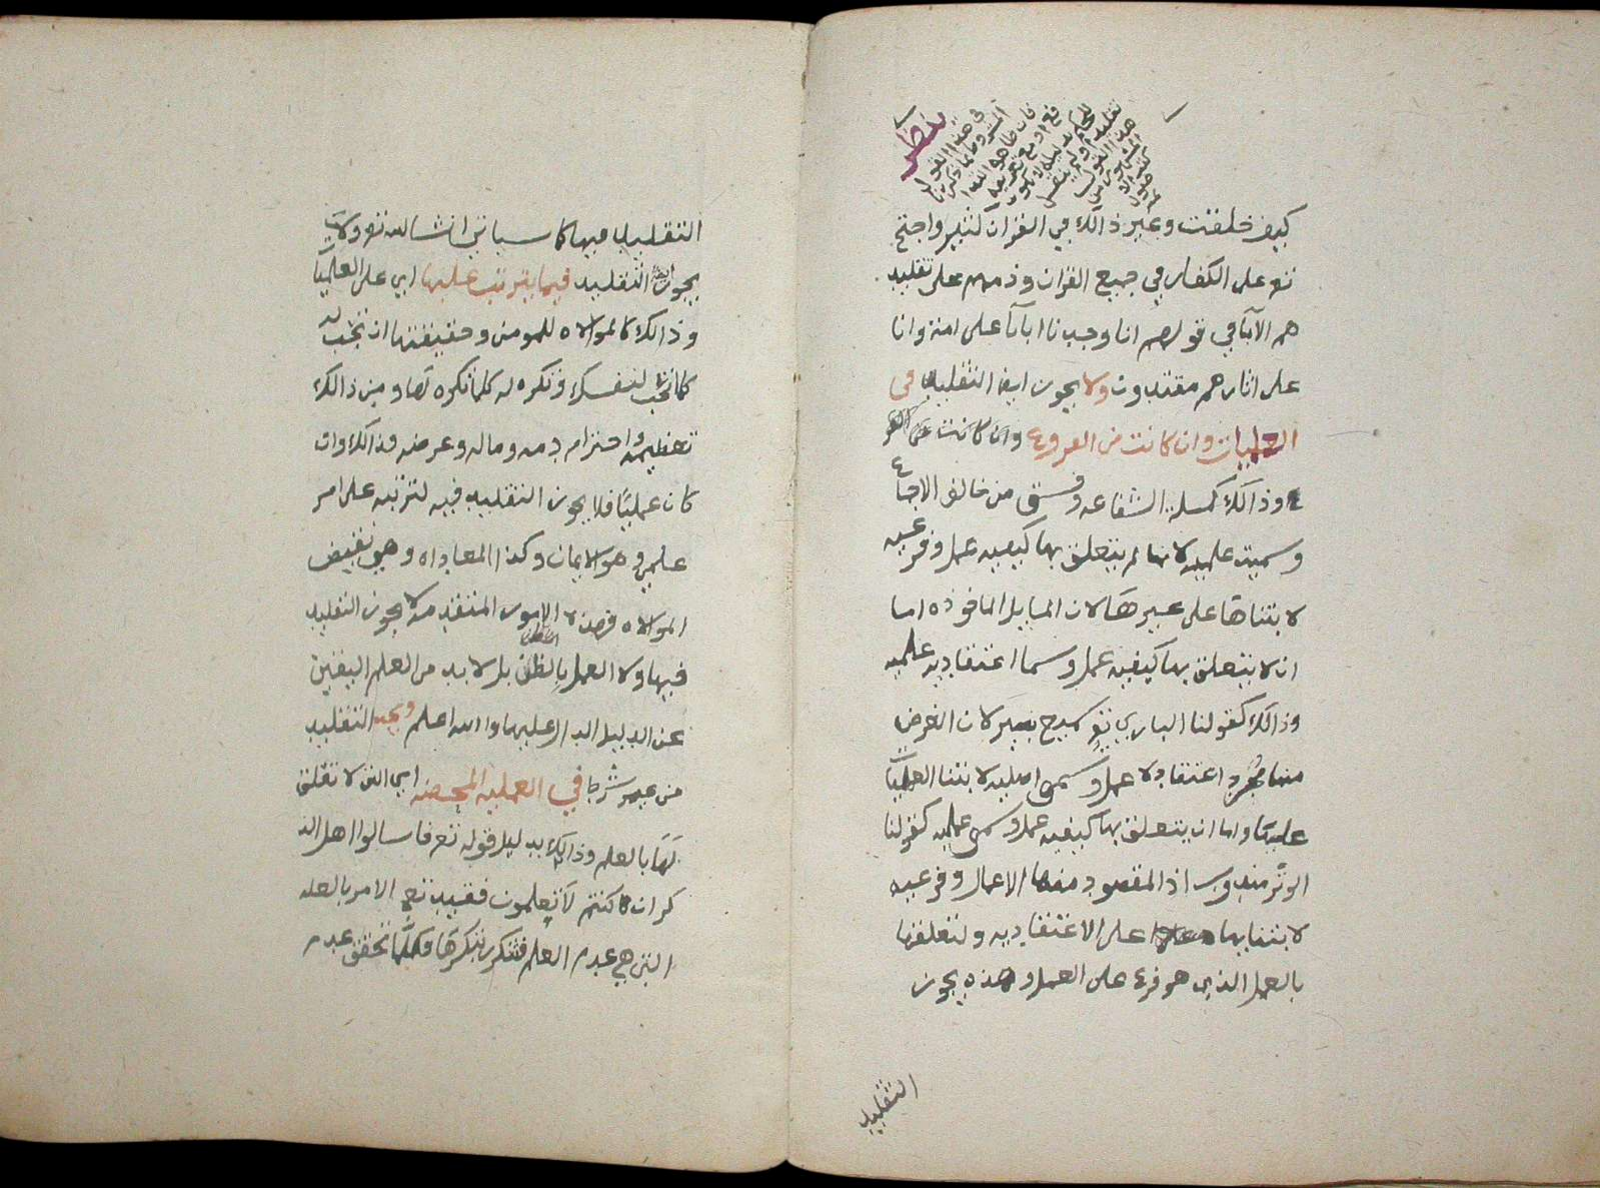 كيف خلقت وغير ذالك في القران كثير واحتج
تعر على الكفار في جميع القران وذمهم على تقليد
هم الآبا في قولهم انا وجدنا ابآنا على امة وانا
على اثارهم مقتدون ولا يجوز ايضا التقليد في
العلميات وان كانت من الفروع وان كانت
وذالك كمسلة الشفاعه وفسق من خالف الاجماع
وسميت علميه لانها لم يتعلق بها كيفيه عمل وفرعيه
لابتناها على غيرها لان المسايل الماخوذه اما
ان لا يتعلق بها كيفيه عمل وسما اعتقاديه علميه
وذالك كقولنا الباري تعر سميع بصير لان الغرض
منها مجرد اعتقاد لا عمل وسمى اصليه لابتنا العمليات
عليها واما ان يتعلق بها كيفيه عمل وسمى عمليه كقولنا
الوتر مندوب اذ المقصود منها الاعمال وفرعيه
لابتنايها على الاعتقاديه ولتعلقها
بالعمل الذي هو فرع على العمل وهذه يجوز
التقليد
التقليد فيها كما سياتي انشا الله تعر ولا
يجوز التقليد فيما يترتب عليها اي على العلميات
وذالك كالموالاه للمومن وحقيقتها ان تحب له
كلما تحب لنفسك وتكره له كلما تكره لها ومن ذالك
تعظيمه واحترام دمه وماله وعرضه فذالك وان
كان عمليا فلا يجوز التقليد فيه لترتبه على امر
علمي وهو الايمان وكذا المعاداه وهي نقيض
الموالاه فهذه الامور المتقدمه لا يجوز التقليد
فيها ولا العمل بالظن بل لا بد من العلم اليقين
عن الدليل الدال عليها والله اعلم ويجب التقليد
من غير شرط في العمليه المحضه اي التي لا تعلق
لها بالعلم وذالك بدليل قوله تعر فاسالوا اهل الذ
كر ان كنتم لا تعلمون فقيد تعر الامر بالعله
التي هي عدم العلم فتتكرر بتكررها فكلما تحقق عدم